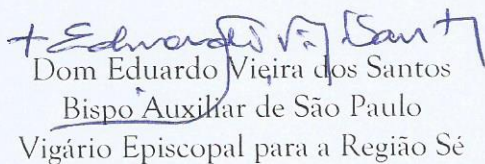 + Eduardo Vieira Sant
Dom Eduardo Vieira dos Santos
Bispo Auxiliar de São Paulo
Vigário Episcopal para a Região Sé